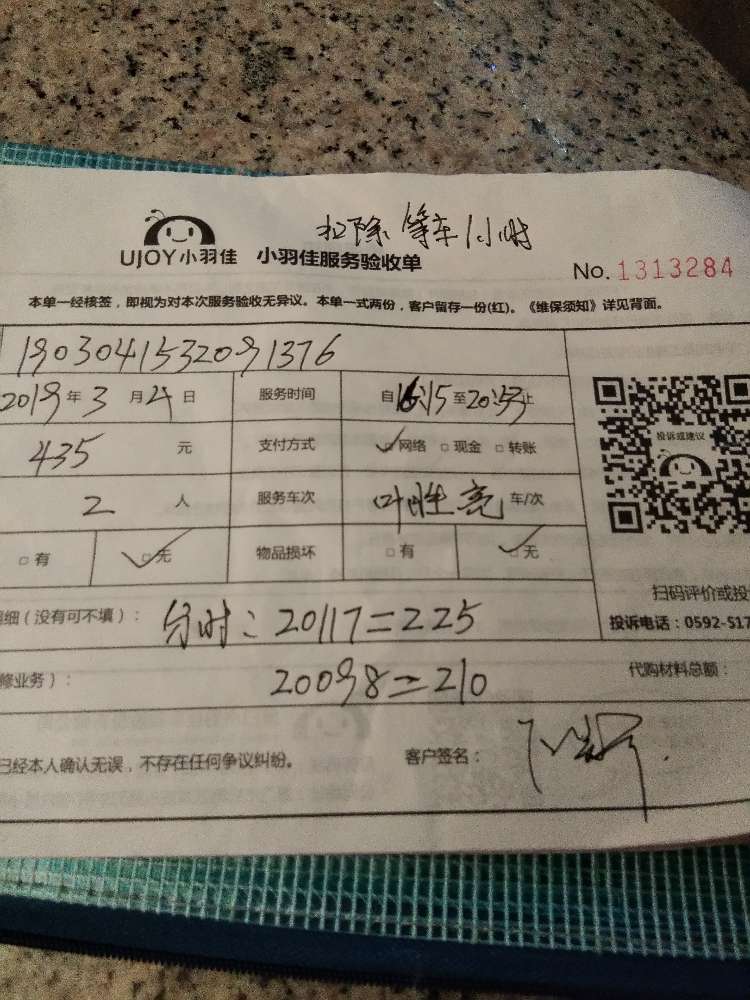 扣除等车1小时
UJOY小羽佳 小羽佳服务验收单
No. 1313284
本单一经核签，即视为对本次服务验收无异议。本单一式两份，客户留存一份(红)。《维保须知》详见背面。
1903041532091376
2019年3月4日 服务时间 自16:15至20:53止
435元 支付方式 网络 现金 转账
投诉或建议
2人 服务车次 叶胜亮 车/次
有 无 物品损坏 有 无
扫码评价或投
细（没有可不填）： 分时：20117=225
投诉电话：0592-517
修业务）： 20098=210
代购材料总额：
已经本人确认无误，不存在任何争议纠纷。 客户签名：